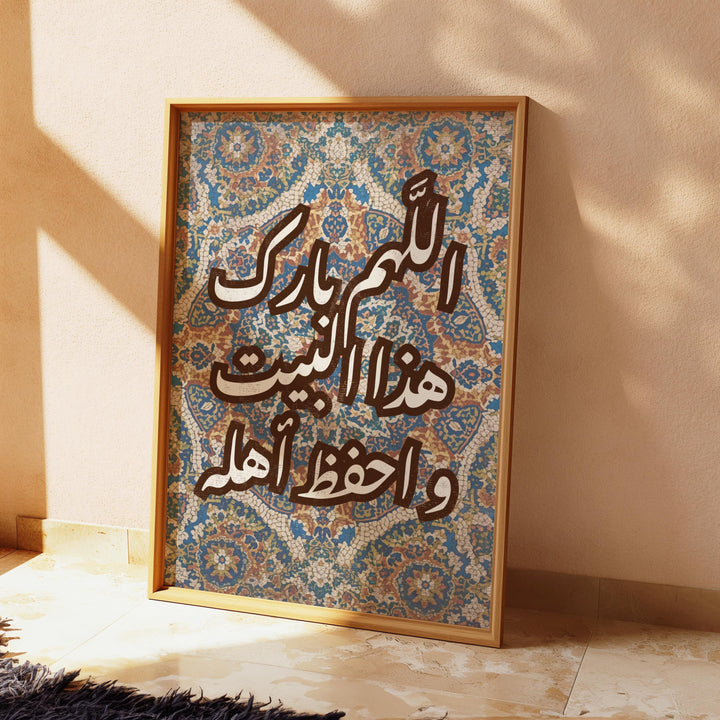 اللَّهم بارك
هذا البيت
و احفظ أهله